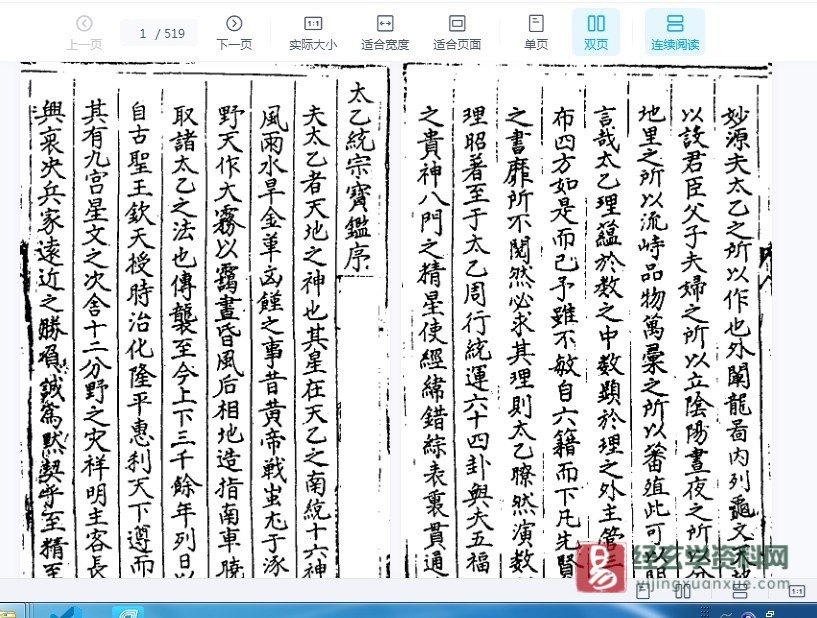 上一页
1 / 519
下一页
1:1
实际大小
适合宽度
适合页面
单页
双页
连续阅读
太乙統宗寶鑑序
夫太乙者天地之神也其星在天乙之南統十六神
風雨水旱金革凶饉之事昔黃帝戰蚩尤于涿
野天作大霧以靄晝昏風后相地造指南車曉
取諸太乙之法也傳襲至今上下三千餘年列日以
自古聖王欽天授時治化隆平惠利天下遵而
其有九宮星文之次舍十二分野之灾祥明主客長
興衰决兵家遠近之勝負誠為默契乎至精至
妙源夫太乙之所以作也外闡龍啚内列龜文天地
以設君臣父子夫婦之所以立陰陽晝夜之所以分
地里之所以流峙品物萬彙之所以蕃殖此可以
言哉太乙理蘊於数之中数顕於理之外主管三
布四方如是而已予雖不敏自六籍而下凡先賢
之書靡所不閱然必求其理則太乙瞭然演数
理昭著至于太乙周行統運六十四卦與夫五福
之貴神八門之精星使經緯錯綜表裏貫通
易
经玄学资料网
yijingxuanxue.com
1:1